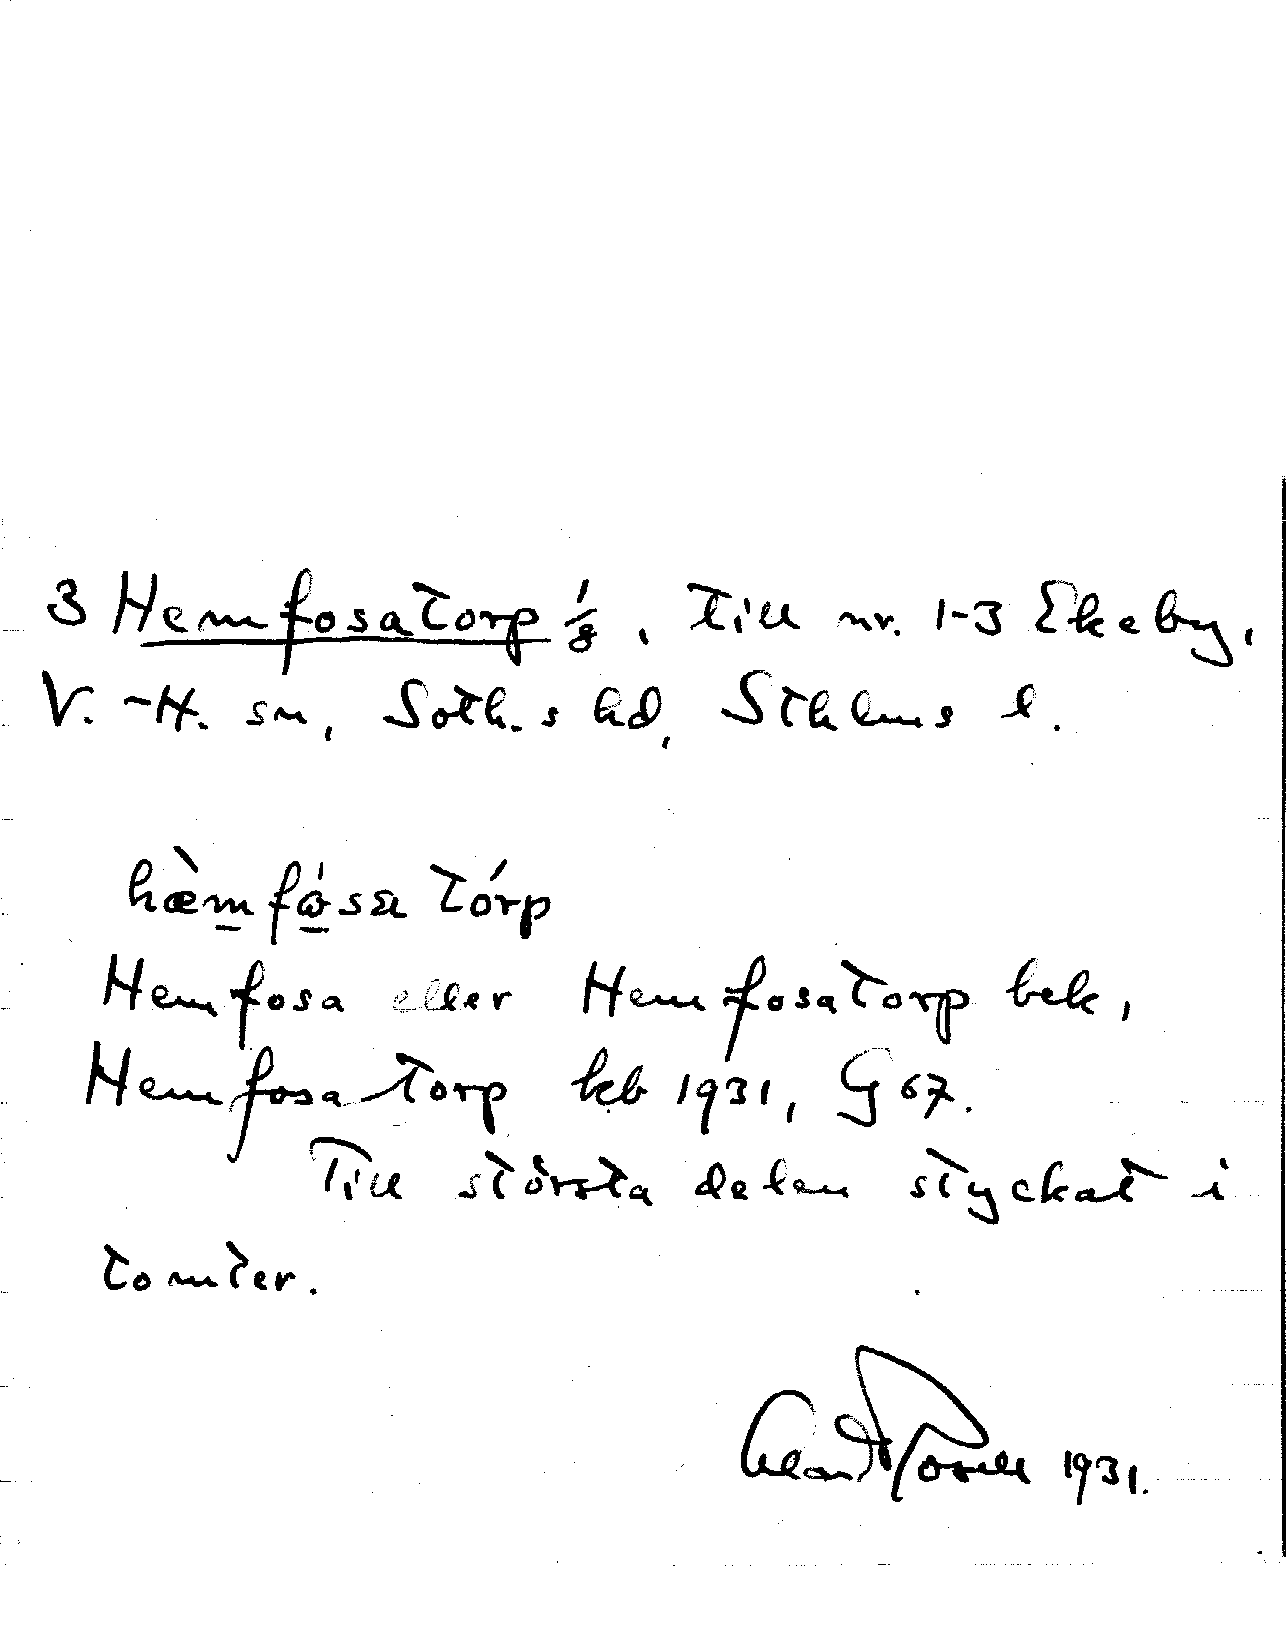 3 Hemfosatorp 1/8, till nr. 1-3 Ekeby,
V.-H. sn, Soth.s hd, Sthlms l.
hæ̀mfòsa tórp
Hemfosa eller Hemfosatorp bek,
Hemfosatorp kb 1931, G 67.
Till största delen styckat i
tomter.
1931.